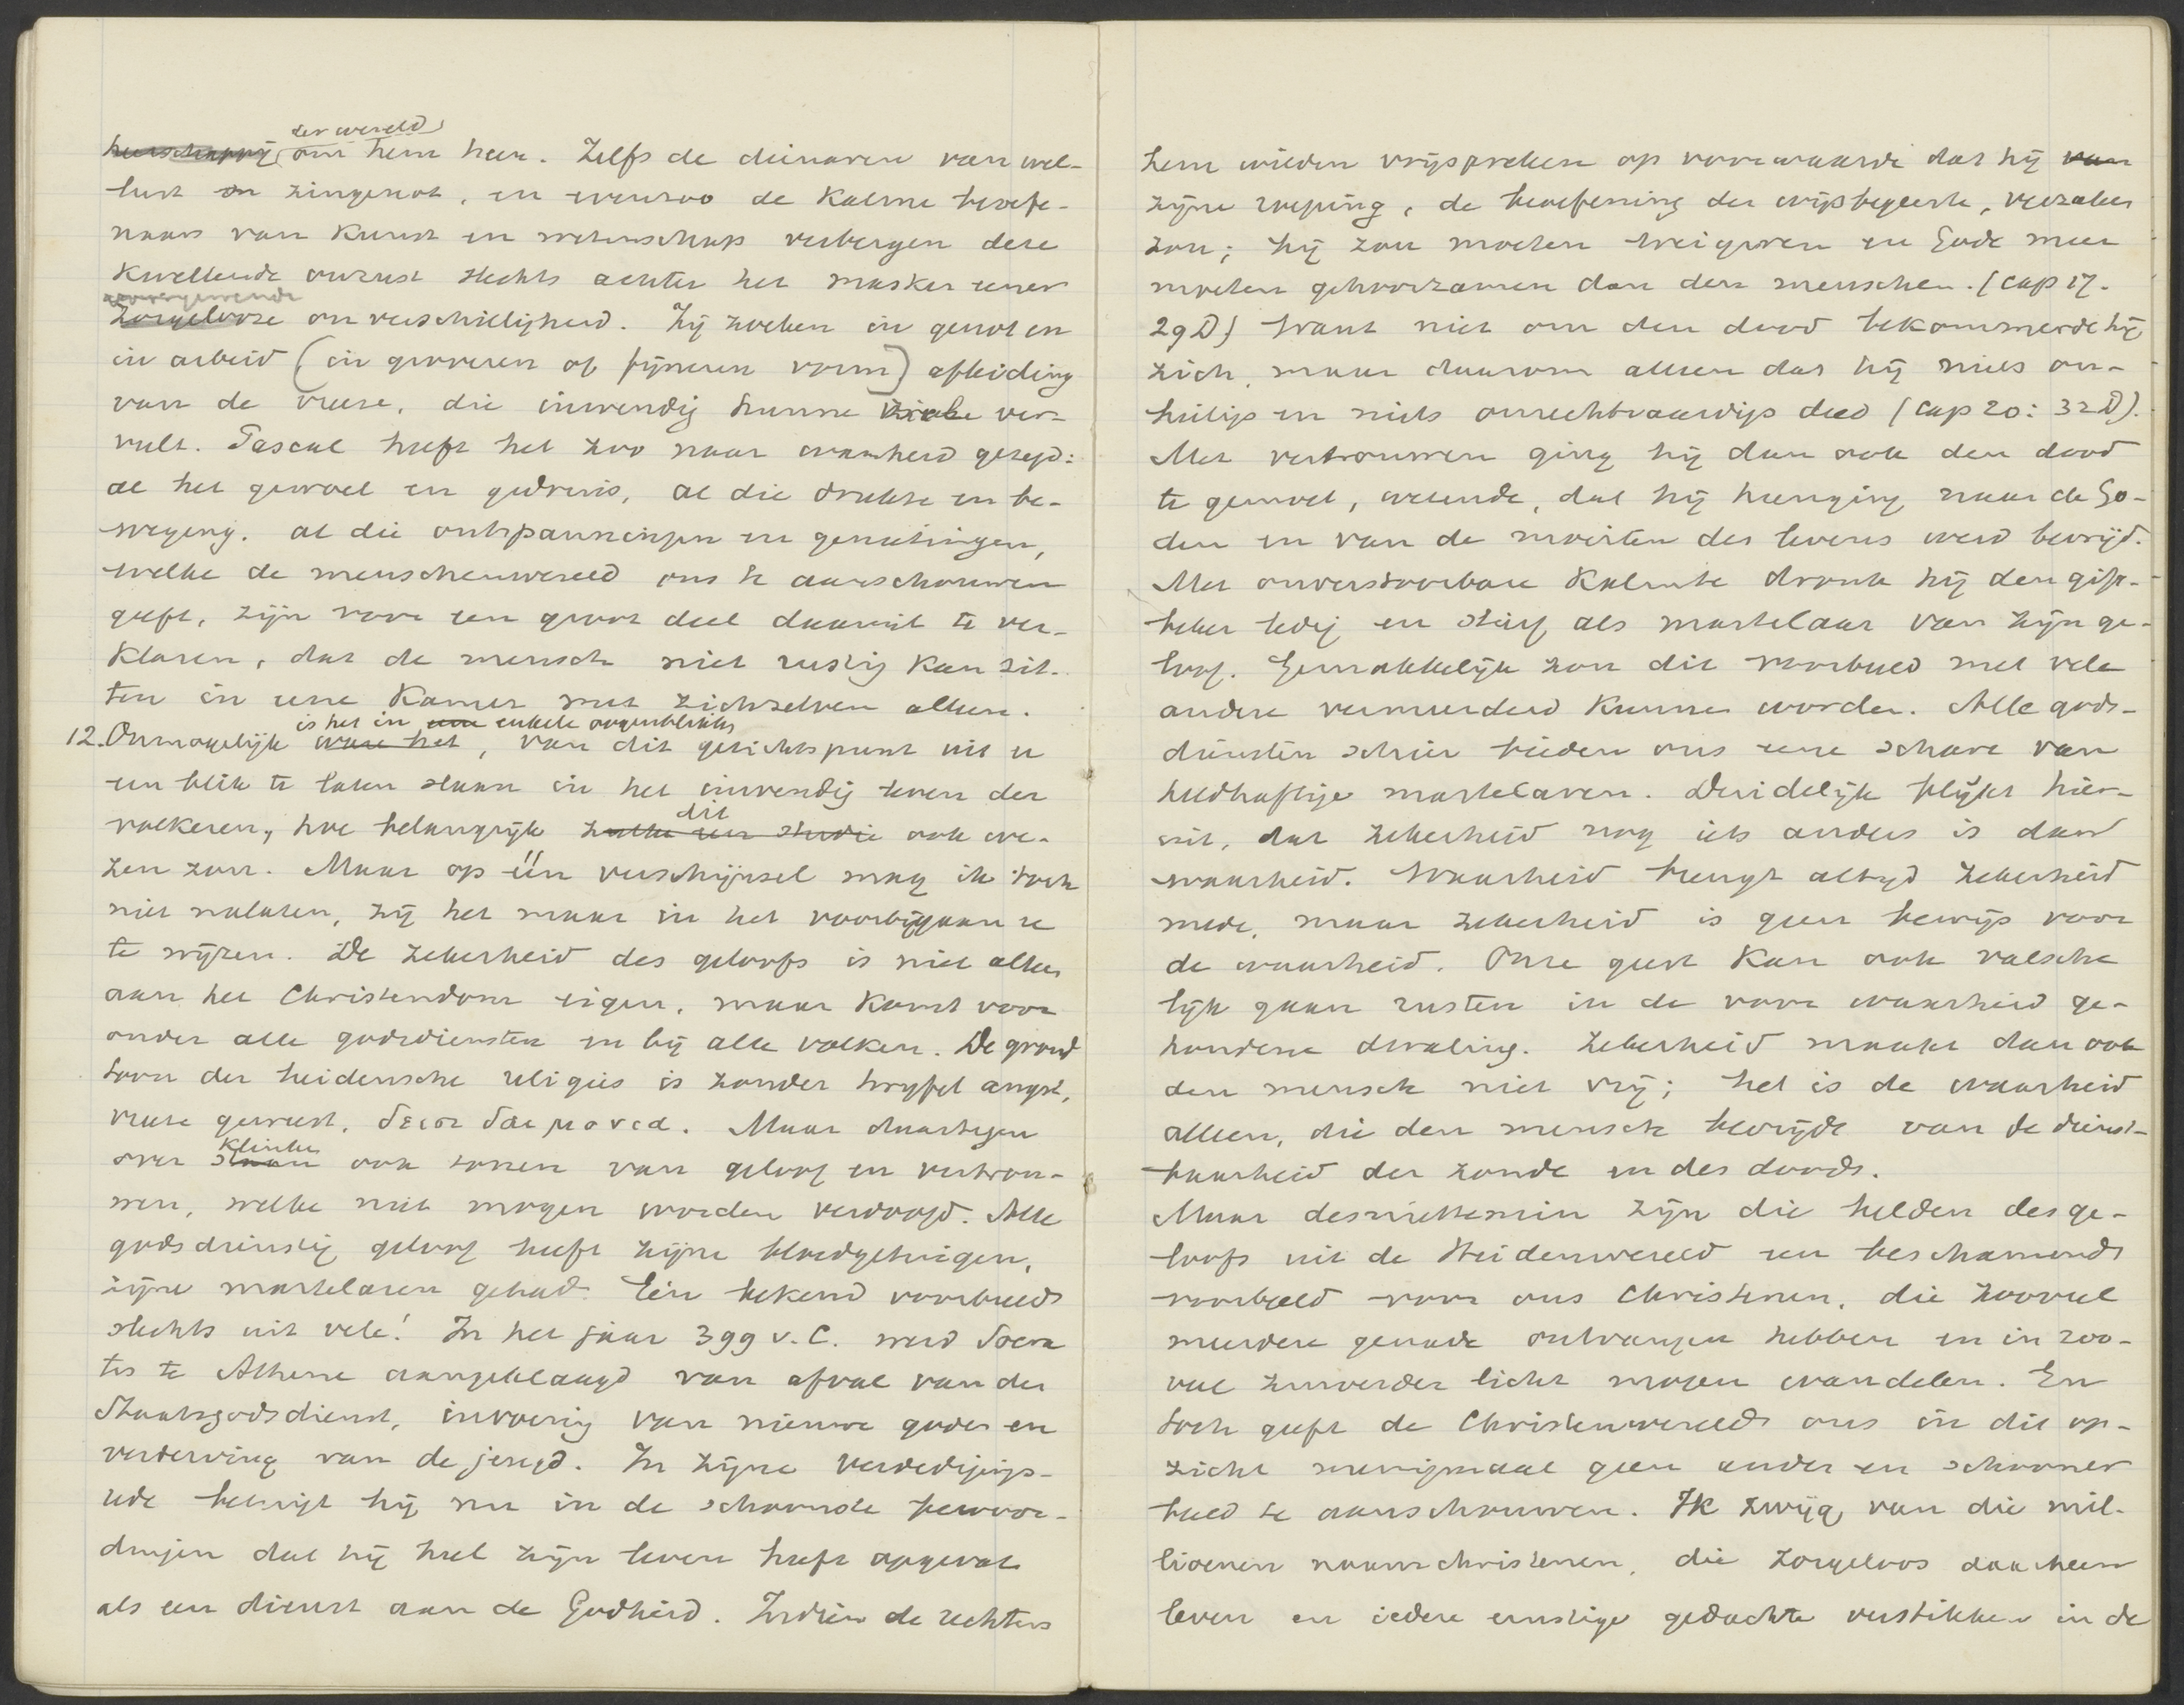 der wereld
heerschappij om hem heen. Zelfs de dienaren van wel-
lust en zingenot, en evenzoo de kalme beoefe-
naars van kunst en wetenschap verbergen deze
kwellende onrust slechts achter het masker eener
voorgewende
zorgelooze onverschilligheid. Zij zoeken in genot en
in arbeid (in groveren of fijneren vorm) afleiding
van de vreeze, die inwendig hunne ziele ver-
vult. Pascal heeft het zoo naar waarheid gezegd:
al het gewoel en gedruis, al die drukte en be-
weging. al die ontspanningen en genietingen,
welke de menschenwereld ons te aanschouwen
geeft, zijn voor een groot deel daaruit te ver-
klaren, dat de mensch niet rustig kan zit-
ten in eene kamer met zichzelven alleen.
is het in een enkele oogenblikken
12. Onmogelijk ware het, van dit gezichtspunt uit u
een blik te laten slaan in het inwendig leven der
dit
volkeren, hoe belangrijk zulke een studie ook we-
zen zou. Maar op één verschijnsel mag ik toch
niet nalaten, zij het maar in het voorbijgaan u
te wijzen. De zekerheid des geloofs is niet alleen
aan het Christendom eigen, maar komt voor
onder alle godsdiensten en bij alle volken. De grond
toon der heidensche religies is zonder twijfel angst,
vreeze geweest, δεισιδαιμονια. Maar daartegen
klinken
over staan ook tonen van geloof en vertrou-
wen, welke niet mogen worden verdoofd. Alle
godsdienstig geloof heeft zijne bloedgetuigen,
zijne martelaren gehad. Eén bekend voorbeeld
slechts uit vele! In het jaar 399 v. C. werd Socra
tes te Athene aangeklaagd van afval van den
Staatsgodsdienst, invoering van nieuwe goden en
verderving van de jeugd. In zijne verdedigings-
rede betuigt hij nu in de schoonste bewoor-
dingen dat hij heel zijn leven heeft opgevat
als een dienst aan de Godheid. Indien de rechters
hem wilden vrijspreken op voorwaarde dat hij van
zijne roeping, de beoefening der wijsbegeerte, verzaken
zou; hij zou moeten weigeren en Gode meer
moeten gehoorzamen dan den menschen. (cap 17.
29D) Want niet om den dood bekommerde hij
zich, maar daarom alleen dat hij niets on-
heiligs en niets onrechtvaardigs deed (cap 20: 32D).
Met vertrouwen ging hij dan ook den dood
te gemoet, wetende, dat hij heenging naar de Go-
den en van de moeiten des levens werd bevrijd.
Met onverstoorbare kalmte dronk hij den gift-
beker ledig en stierf als martelaar van zijn ge-
loof. Gemakkelijk zou dit voorbeeld met vele
andere vermeerderd kunnen worden. Alle gods-
diensten schier bieden ons eene schare van
heldhaftige martelaren. Duidelijk blijkt hier-
uit, dat zekerheid nog iets anders is dan
waarheid. Waarheid brengt altijd zekerheid
mede, maar zekerheid is geen bewijs voor
de waarheid. Onze geest kan ook valsche
lijk gaan rusten in de voor waarheid ge-
houdene dwaling. Zekerheid maakt dan ook
den mensch niet vrij; het is de waarheid
alleen, die den mensch bevrijdt van de dienst-
baarheid der zonde en des doods.
Maar desniettemin zijn die helden des ge-
loofs uit de Heidenwereld een beschamend
voorbeeld voor ons Christenen, die zooveel
meerdere genade ontvangen hebben en in zoo-
veel zuiverder licht mogen wandelen. En
toch geeft de Christenwereld ons in dit op-
zicht menigmaal geen ander en schooner
beeld te aanschouwen. Ik zwijg van die mil-
lioenen naamchristenen, die zorgeloos daarheen
leven en iedere ernstige gedachte verstikken in de